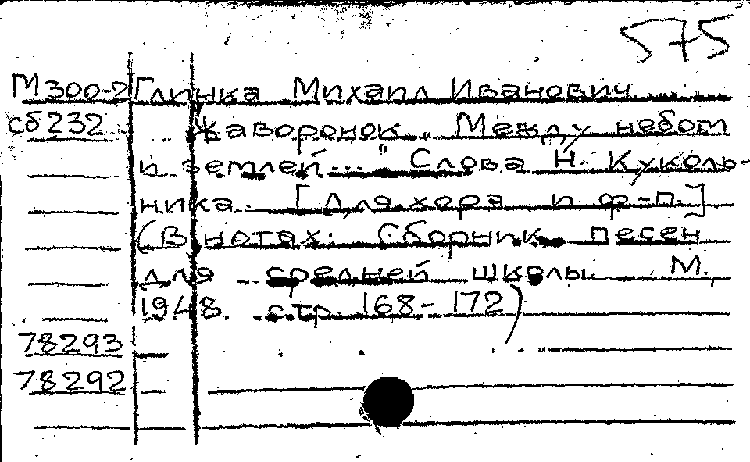 575
М300-2 Глинка Михаил Иванович
сб232 Жаворонок „Между небом
и землей..." Слова Н. Куколь-
ника. [Для хора и ф-п.]
(В нотах: Сборник песен
для средней школы. М.,
1948. стр. 168-172)
78293
78292